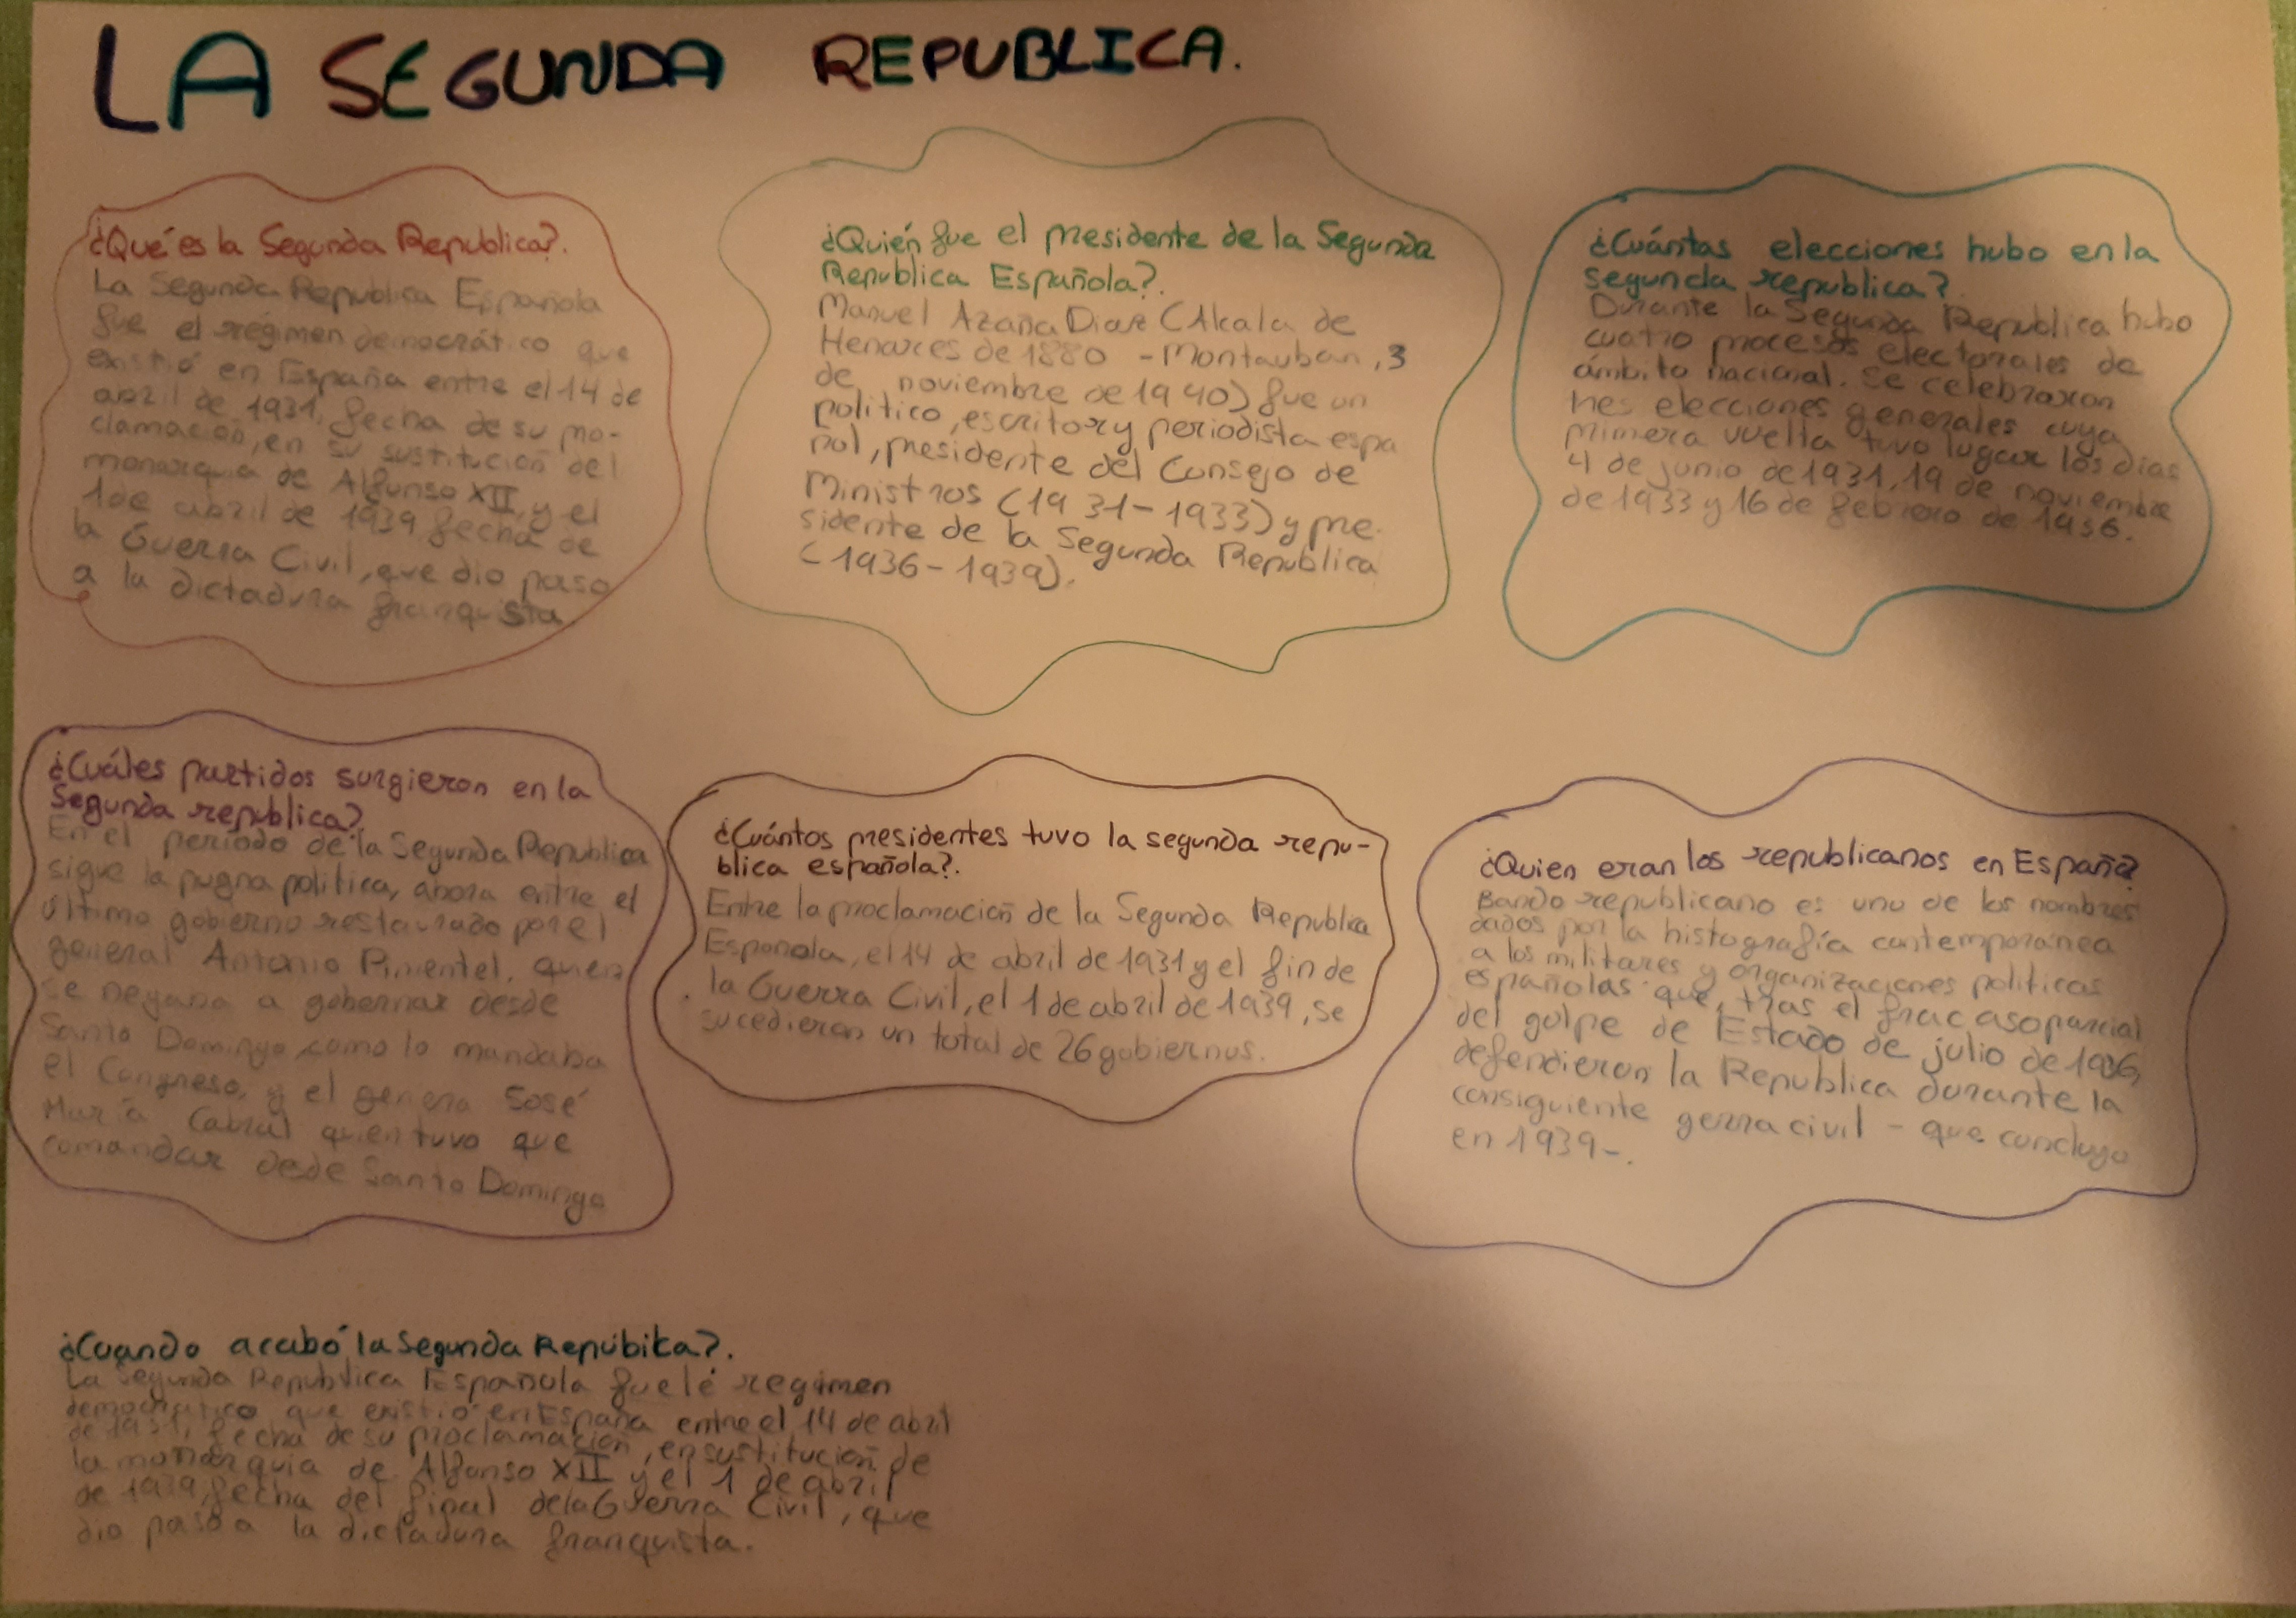 LA SEGUNDA REPUBLICA.
¿Qué es la Segunda Republica?.
La Segunda Republica Española
fue el régimen democrático que
existió en España entre el 14 de
abril de 1931, fecha de su pro-
clamación, en su sustitución del
monarquia de Alfonso XII, y el
1 de abril de 1939 fecha de
la Guerra Civil, que dio paso
a la dictadura franquista.
¿Quién fue el presidente de la Segunda
Republica Española?.
Manuel Azaña Diaz (Alcala de
Henares de 1880 - Montauban, 3
de noviembre de 1940) fue un
politico, escritor y periodista espa
ñol, presidente del Consejo de
Ministros (1931-1933) y pre-
sidente de la Segunda Republica
(1936-1939).
¿Cuántas elecciones hubo en la
segunda republica?
Durante la Segunda Republica hubo
cuatro procesos electorales de
ámbito nacional. Se celebraron
tres elecciones generales cuya
primera vuelta tuvo lugar los dias
4 de junio de 1931, 19 de noviembre
de 1933 y 16 de febrero de 1936.
¿Cuáles partidos surgieron en la
Segunda republica?
En el período de la Segunda Republica
sigue la pugna politica, ahora entre el
último gobierno restaurado por el
general Antonio Pimentel, quien
se negana a gobernar desde
Santo Domingo como lo mandaba
el Congreso, y el genera José
María Cabral quien tuvo que
comandar desde Santo Domingo
¿Cuántos presidentes tuvo la segunda repu-
blica española?.
Entre la proclamación de la Segunda Republica
Española, el 14 de abril de 1931 y el fin de
la Guerra Civil, el 1 de abril de 1939, se
sucedieron un total de 26 gobiernos.
¿Quien eran los republicanos en España?
Bando republicano es uno de los nombres
dados por la histografía contemporánea
a los militares y organizaciones politicas
españolas que, tras el fracaso parcial
del golpe de Estado de julio de 1936,
defendieron la Republica durante la
consiguiente gerra civil - que concluyo
en 1939-.
¿Cuando acabó la Segunda República?.
La Segunda Republica Española fue le regimen
democratico que existió en España entre el 14 de abril
de 1931, fecha de su proclamación, en sustitución de
la monarquia de Alfonso XII y el 1 de abril
de 1939, fecha del final de la Guerra Civil, que
dio paso a la dictadura franquista.